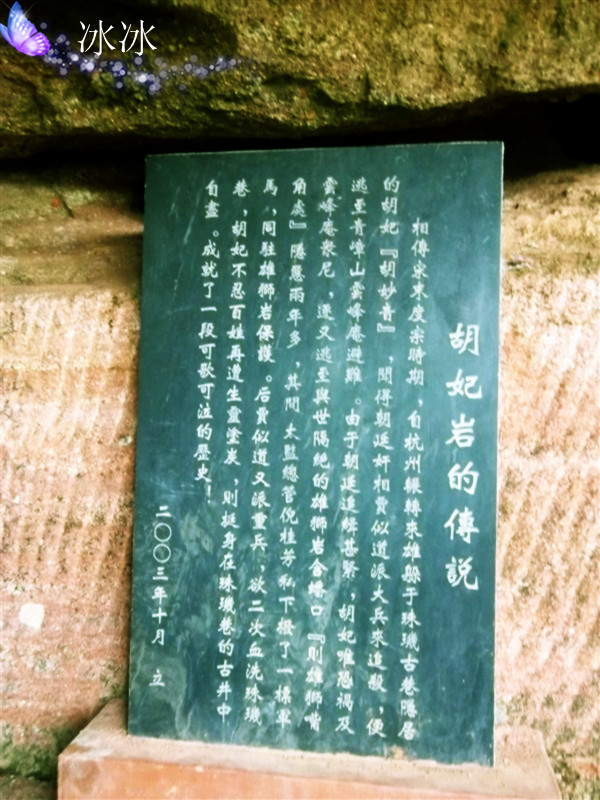 冰冰
胡妃岩的傳説
相傳宋末度宗時期，自杭州輾轉來雄躲于珠璣古巷隱居
的胡妃『胡妙音』，聞得朝廷奸相賈似道派大兵來追殺，便
逃至青嶂山雲峰庵避難。由于朝廷追緝甚緊，胡妃唯恐禍及
雲峰庵衆尼，遂又逃至與世隔絶的雄獅岩含蟠口『則雄獅嘴
角處』隱居兩年多，其間太監總管倪桂芳私下撥了一標軍
馬，同駐雄獅岩保護。后賈似道又派重兵，欲二次血洗珠璣
巷，胡妃不忍百姓再遭生靈塗炭，則挺身在珠璣巷的古井中
自盡。成就了一段可歌可泣的歷史！
二〇〇三年十月 立